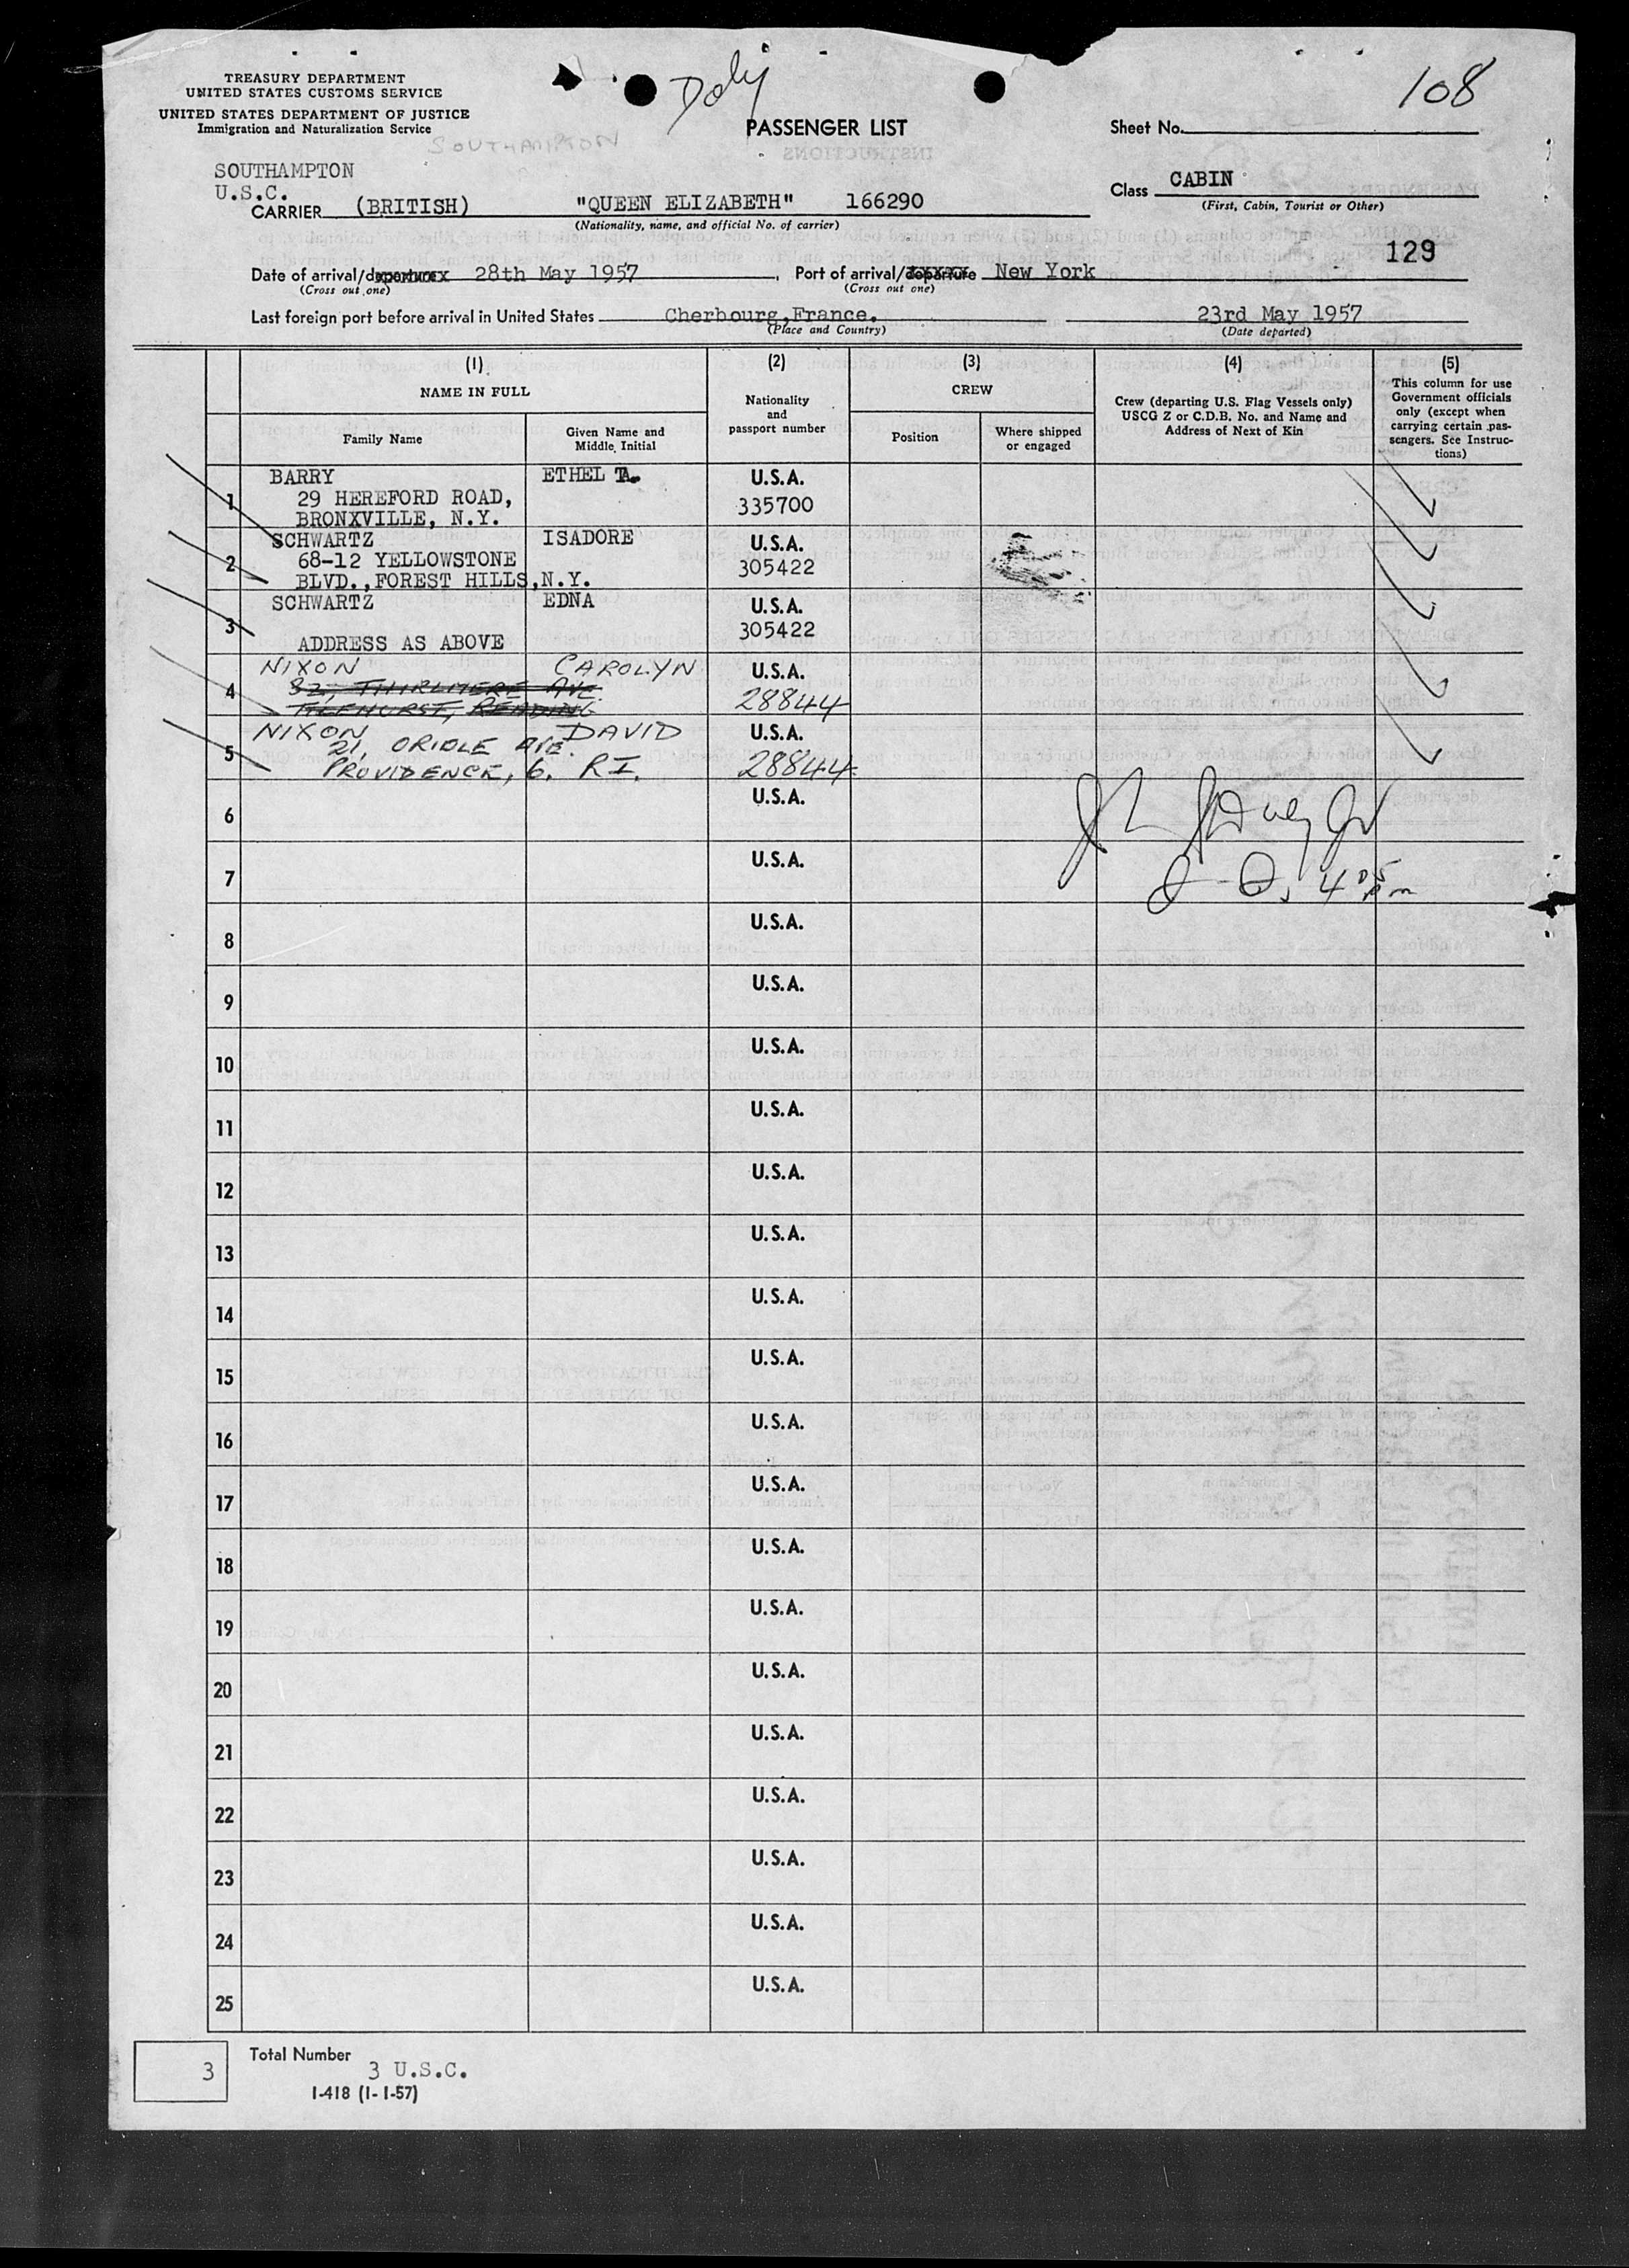 TREASURY DEPARTMENT
UNITED STATES CUSTOMS SERVICE
UNITED STATES DEPARTMENT OF JUSTICE
Immigration and Naturalization Service
SOUTHAMPTON
PASSENGER LIST
108
Sheet No.
SOUTHAMPTON
U.S.C.
CARRIER (BRITISH) "QUEEN ELIZABETH" 166290
(Nationality, name, and official No. of carrier)
Class CABIN
(First, Cabin, Tourist or Other)
129
Date of arrival/departure 28th May 1957, Port of arrival/departure New York
(Cross out one) (Cross out one)
Last foreign port before arrival in United States Cherbourg, France. 23rd May 1957
(Place and Country) (Date departed)
(1) (2) (3) (4) (5)
NAME IN FULL
Nationality and passport number
CREW
Crew (departing U.S. Flag Vessels only) USCG Z or C.D.B. No. and Name and Address of Next of Kin
This column for use Government officials only (except when carrying certain passengers. See Instructions)
Family Name
Given Name and Middle Initial
Position
Where shipped or engaged
1 BARRY ETHEL T. U.S.A.
29 HEREFORD ROAD, 335700
BRONXVILLE, N.Y.
2 SCHWARTZ ISADORE U.S.A.
68-12 YELLOWSTONE 305422
BLVD., FOREST HILLS, N.Y.
3 SCHWARTZ EDNA U.S.A.
305422
ADDRESS AS ABOVE
4 NIXON CAROLYN U.S.A.
82, THIRLMERE AVE.
TILEHURST, READING 28844
5 NIXON DAVID U.S.A.
21, ORIOLE AVE.
PROVIDENCE, 6. R.I. 28844
6 U.S.A.
7 U.S.A.
4 05 pm
8 U.S.A.
9 U.S.A.
10 U.S.A.
11 U.S.A.
12 U.S.A.
13 U.S.A.
14 U.S.A.
15 U.S.A.
16 U.S.A.
17 U.S.A.
18 U.S.A.
19 U.S.A.
20 U.S.A.
21 U.S.A.
22 U.S.A.
23 U.S.A.
24 U.S.A.
25 U.S.A.
3 Total Number 3 U.S.C.
I-418 (1-1-57)